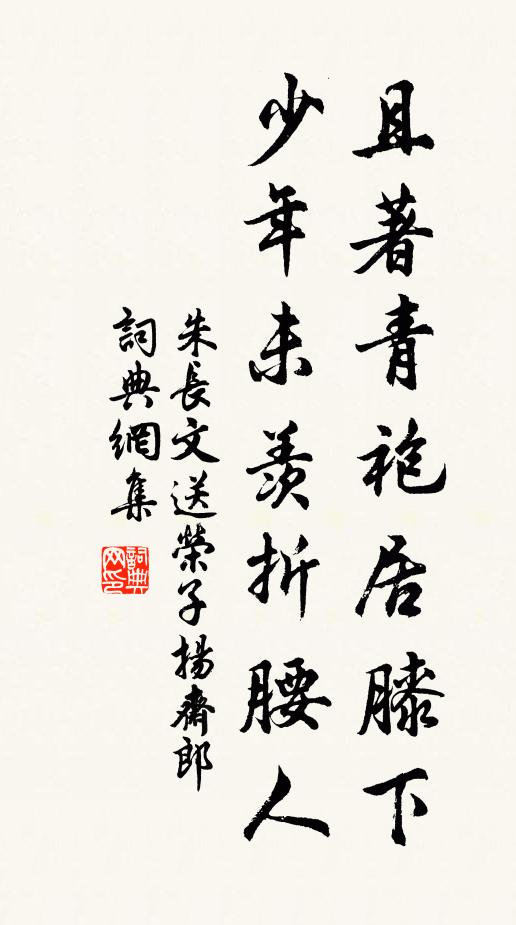 且著青袍居膝下
少年未羨折腰人
朱長文送榮子揚齋郎
詞典網集
詞典网印